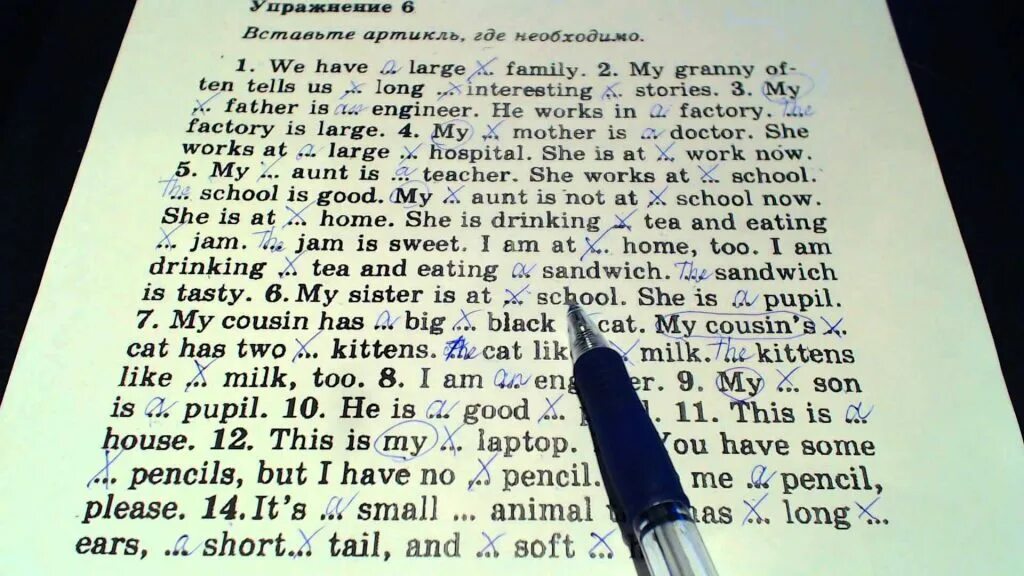 Упражнение 6
Вставьте артикль, где необходимо.
1. We have a large x family. 2. My granny of-
ten tells us x long x interesting x stories. 3. My
x father is an engineer. He works in a factory. The
factory is large. 4. My x mother is a doctor. She
works at a large x hospital. She is at x work now.
5. My x aunt is a teacher. She works at x school.
The school is good. My x aunt is not at x school now.
She is at x home. She is drinking x tea and eating
x jam. The jam is sweet. I am at x home, too. I am
drinking x tea and eating a sandwich. The sandwich
is tasty. 6. My sister is at x school. She is a pupil.
7. My cousin has a big x black cat. My cousin's x
cat has two x kittens. The cat x milk. The kittens
like x milk, too. 8. I am an 9. My x son
is a pupil. 10. He is a good x 11. This is a
house. 12. This is my x laptop. You have some
x pencils, but I have no x pencil. me a pencil,
please. 14. It's a small ... animal has x long x
ears, a short x tail, and x soft x